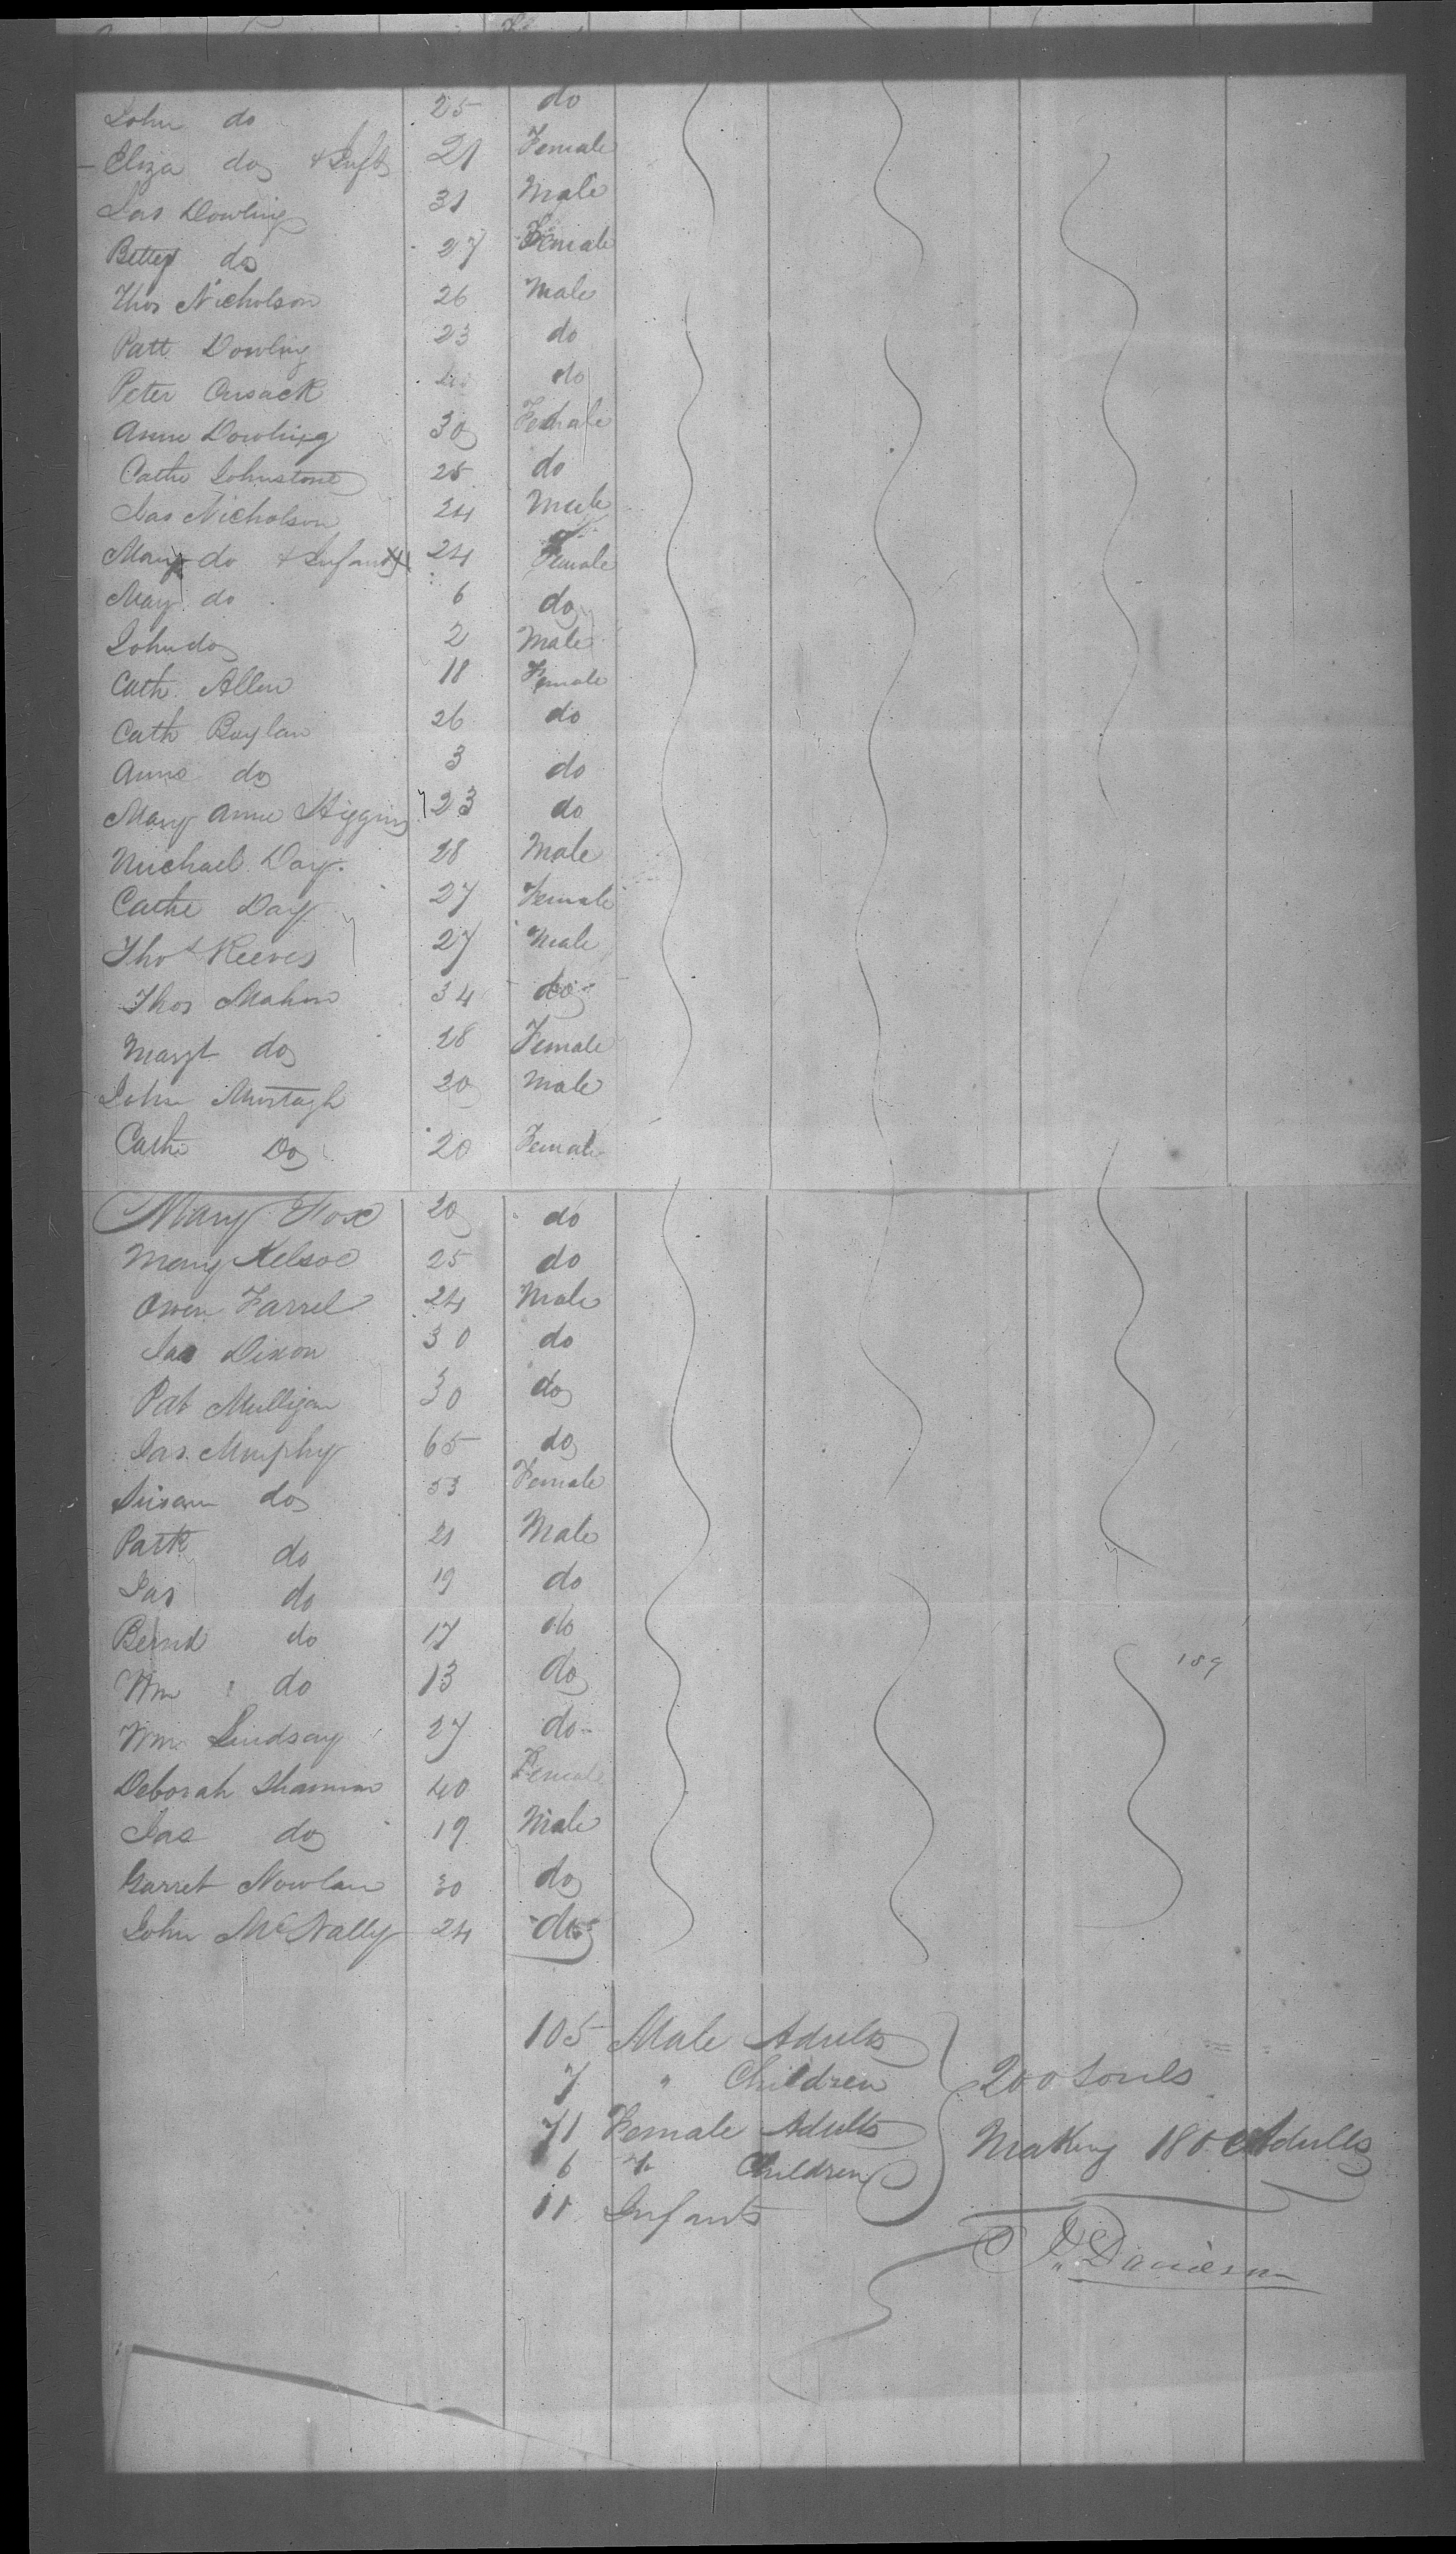 John do 25 do
Eliza do & Inft 21 Female
Jas Dowling 31 Male
Bettey do 27 Female
Thos Nicholson 26 Male
Patt Dowling 23 do
Peter Cusack do
Anne Dowling 30 Female
Cathe Johnstone 25 do
Jas Nicholson 24 Male
Mary do & Infant 24 Female
May do 6 do
John do 2 Male
Cath Allen 18 Female
Cath Boylan 26 do
Anne do 3 do
Mary Anne Higgins 23 do
Michael Day. 28 Male
Cathe Day 27 Female
Thos Reeves 27 Male
Thos Mahon 34 do
Margt do 28 Female
John Murtagh 20 Male
Cathe Do 20 Female
Mary Fox 20 do
Mary Kelsoe 25 do
Owen Farrel 24 Male
Jas Dixon 30 do
Pat Mulligan 30 do
Jas Murphy 65 do
Susan do 53 Female
Patk do 21 Male
Jas do 19 do
Bernd do 17 do
Wm do 13 do
189
Wm Lindsay 27 do
Deborah Shannon 40 Female
Jas do 19 Male
Garret Nowlan 30 do
John McNally 24 do
105 Male Adults
7 " Children 200 Souls
71 Female Adults
Making 180 Adults
6 " Children
11 Infants